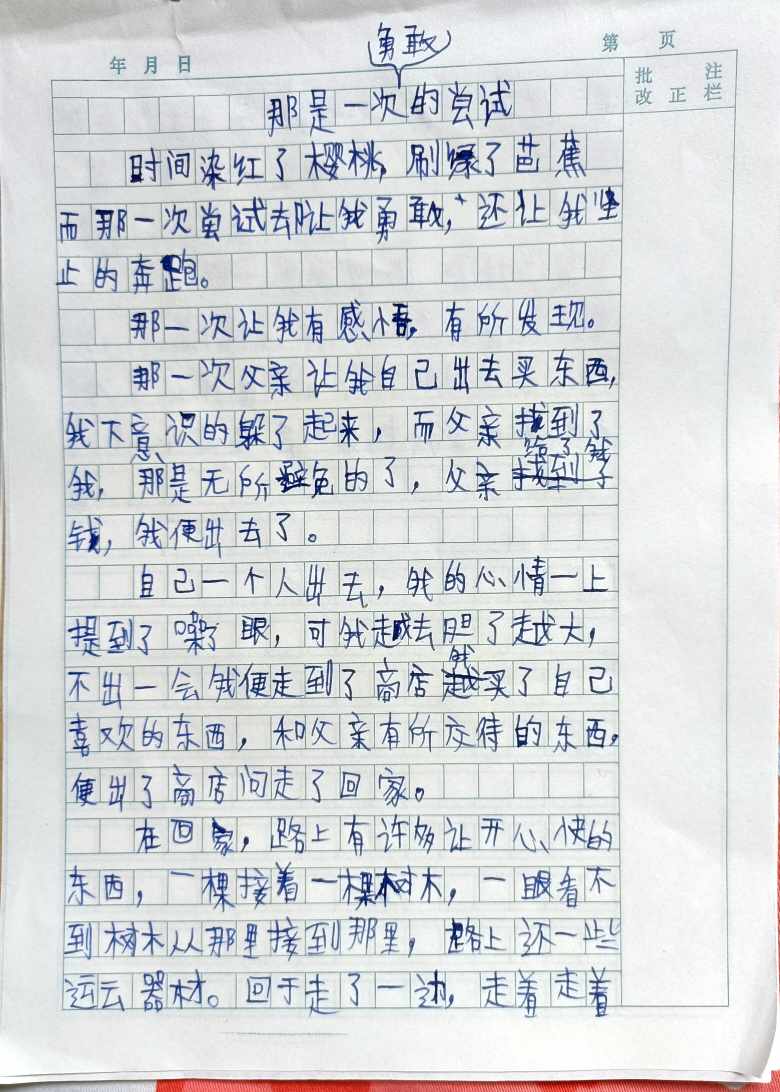 年 月 日
第 页
批 注
改 正 栏
勇敢
那是一次的尝试
时间染红了樱桃，刷绿了芭蕉
而那一次尝试去让我勇敢，还让我坐
止的奔跑。
那一次让我有感悟，有所发现。
那一次父亲让我自己出去买东西，
我下意识的躲了起来，而父亲找到了
给了我
我，那是无所避免的了，父亲
钱，我便出去了。
自己一个人出去，我的心情一上
提到了嗓了眼，可我越去胆了越大，
我
不出一会我便走到了商店买了自己
喜欢的东西，和父亲有所交待的东西，
便出了商店问走了回家。
在回家，路上有许多让开心快的
东西，一棵接着一棵树木，一眼看不
到树木从那里接到那里，路上还一些
运云器材。回于走了一边，走着走着